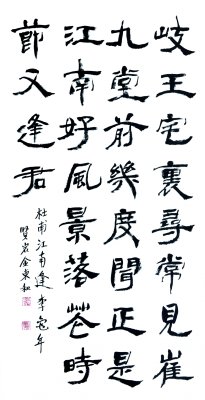 岐王宅裏尋常見崔
九堂前幾度聞正是
江南好風景落花時
節又逢君
杜甫江南逢李龜年
金東